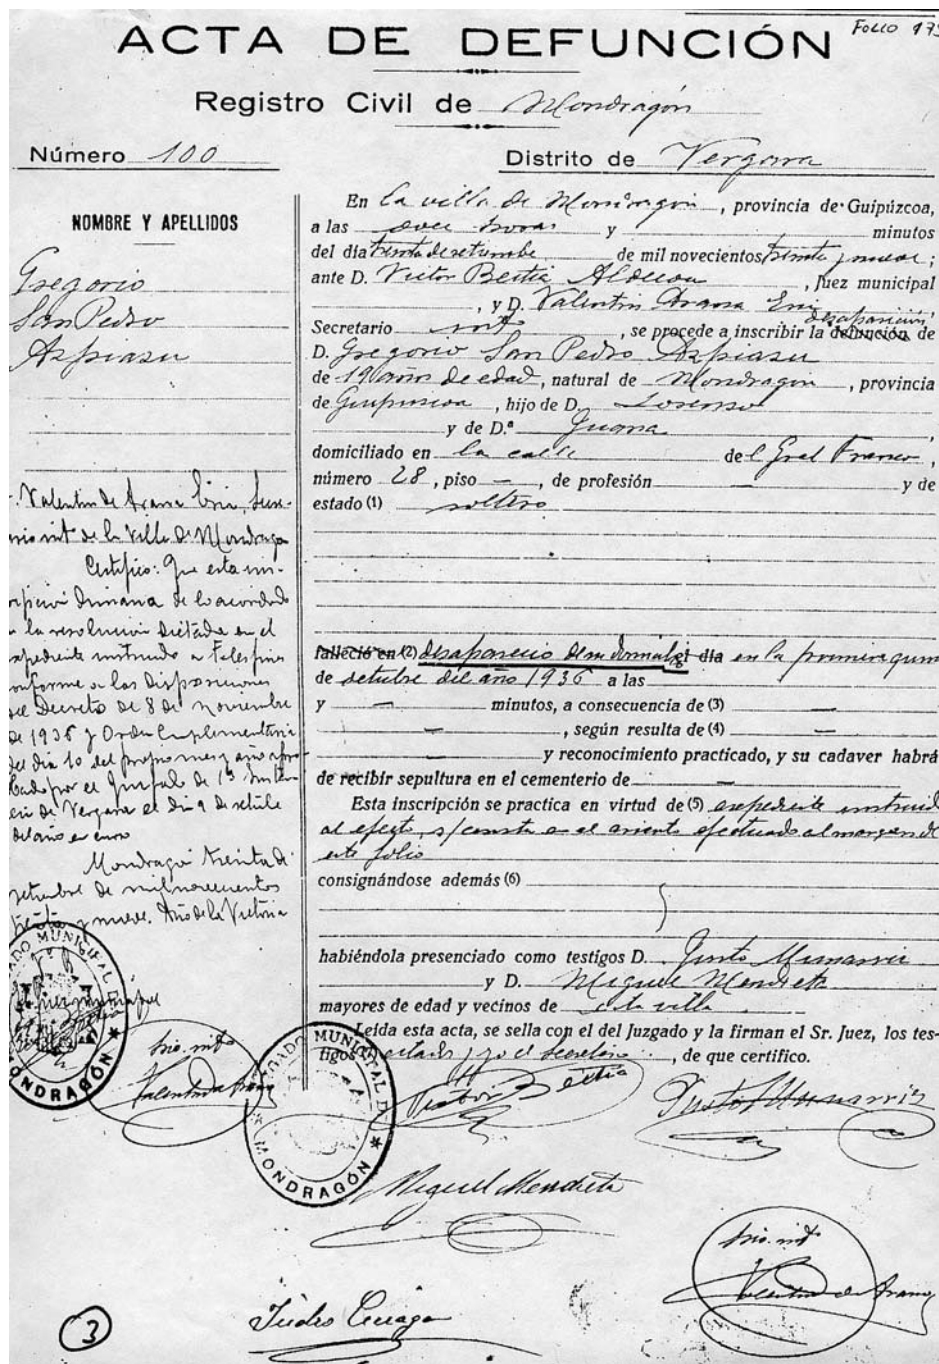 FOLIO 173
ACTA DE DEFUNCIÓN
Registro Civil de Mondragón
Número 100
Distrito de Vergara
NOMBRE Y APELLIDOS
Gregorio
San Pedro
Azpiasu
Valentin de Arana
int de la Villa de Mondragon
Certifico: Que esta ins-
cripcion dimana de lo acordado
la resolucion dictada en el
expediente instruido a tales fines
conforme a las disposiciones
del Decreto de 8 de noviembre
de 1936 y Orden Complementaria
del dia 10 del propio mes y año apro
bado por el de 1ª instan
cia de Vergara el dia 9 de setbre
del año en curso
Mondragon treinta de
setiembre de mil novecientos
treinta y nueve. Año de la Victoria
En la villa de Mondragon, provincia de Guipúzcoa,
a las once horas y minutos
del día treinta de setiembre de mil novecientos treinta y nueve;
ante D. Victor Bertia, Juez municipal
, y D. Valentin Arana
desaparición
Secretario int, se procede a inscribir la defunción de
D. Gregorio San Pedro Azpiasu
de 19 años de edad, natural de Mondragon, provincia
de Guipuscoa, hijo de D. Lorenso
y de D.ª Juana
domiciliado en la calle del Gral Franco,
número 28, piso —, de profesión — y de
estado (1) soltero
falleció en (2) desaparecio de su domicilio el día en la primera quin
de setbre del año 1936 a las
y — minutos, a consecuencia de (3) —
—, según resulta de (4) —
— y reconocimiento practicado, y su cadaver habrá
de recibir sepultura en el cementerio de —
Esta inscripción se practica en virtud de (5) expediente instruido
al efecto, s/ consta en el asiento efectuado al margen de
este folio
consignándose además (6)
habiéndola presenciado como testigos D. Justo Munarriz
y D. Miguel Mendieta
mayores de edad y vecinos de esta villa
Leída esta acta, se sella con el del Juzgado y la firman el Sr. Juez, los tes-
tigos citados y yo el Secretario, de que certifico.
JUZGADO MUNICIPAL DE MONDRAGÓN
Srio. int
Valentin de Arana
JUZGADO MUNICIPAL DE MONDRAGÓN
Victor Bertia
Justo Munarriz
Miguel Mendieta
Srio. int
Valentin de Arana
3